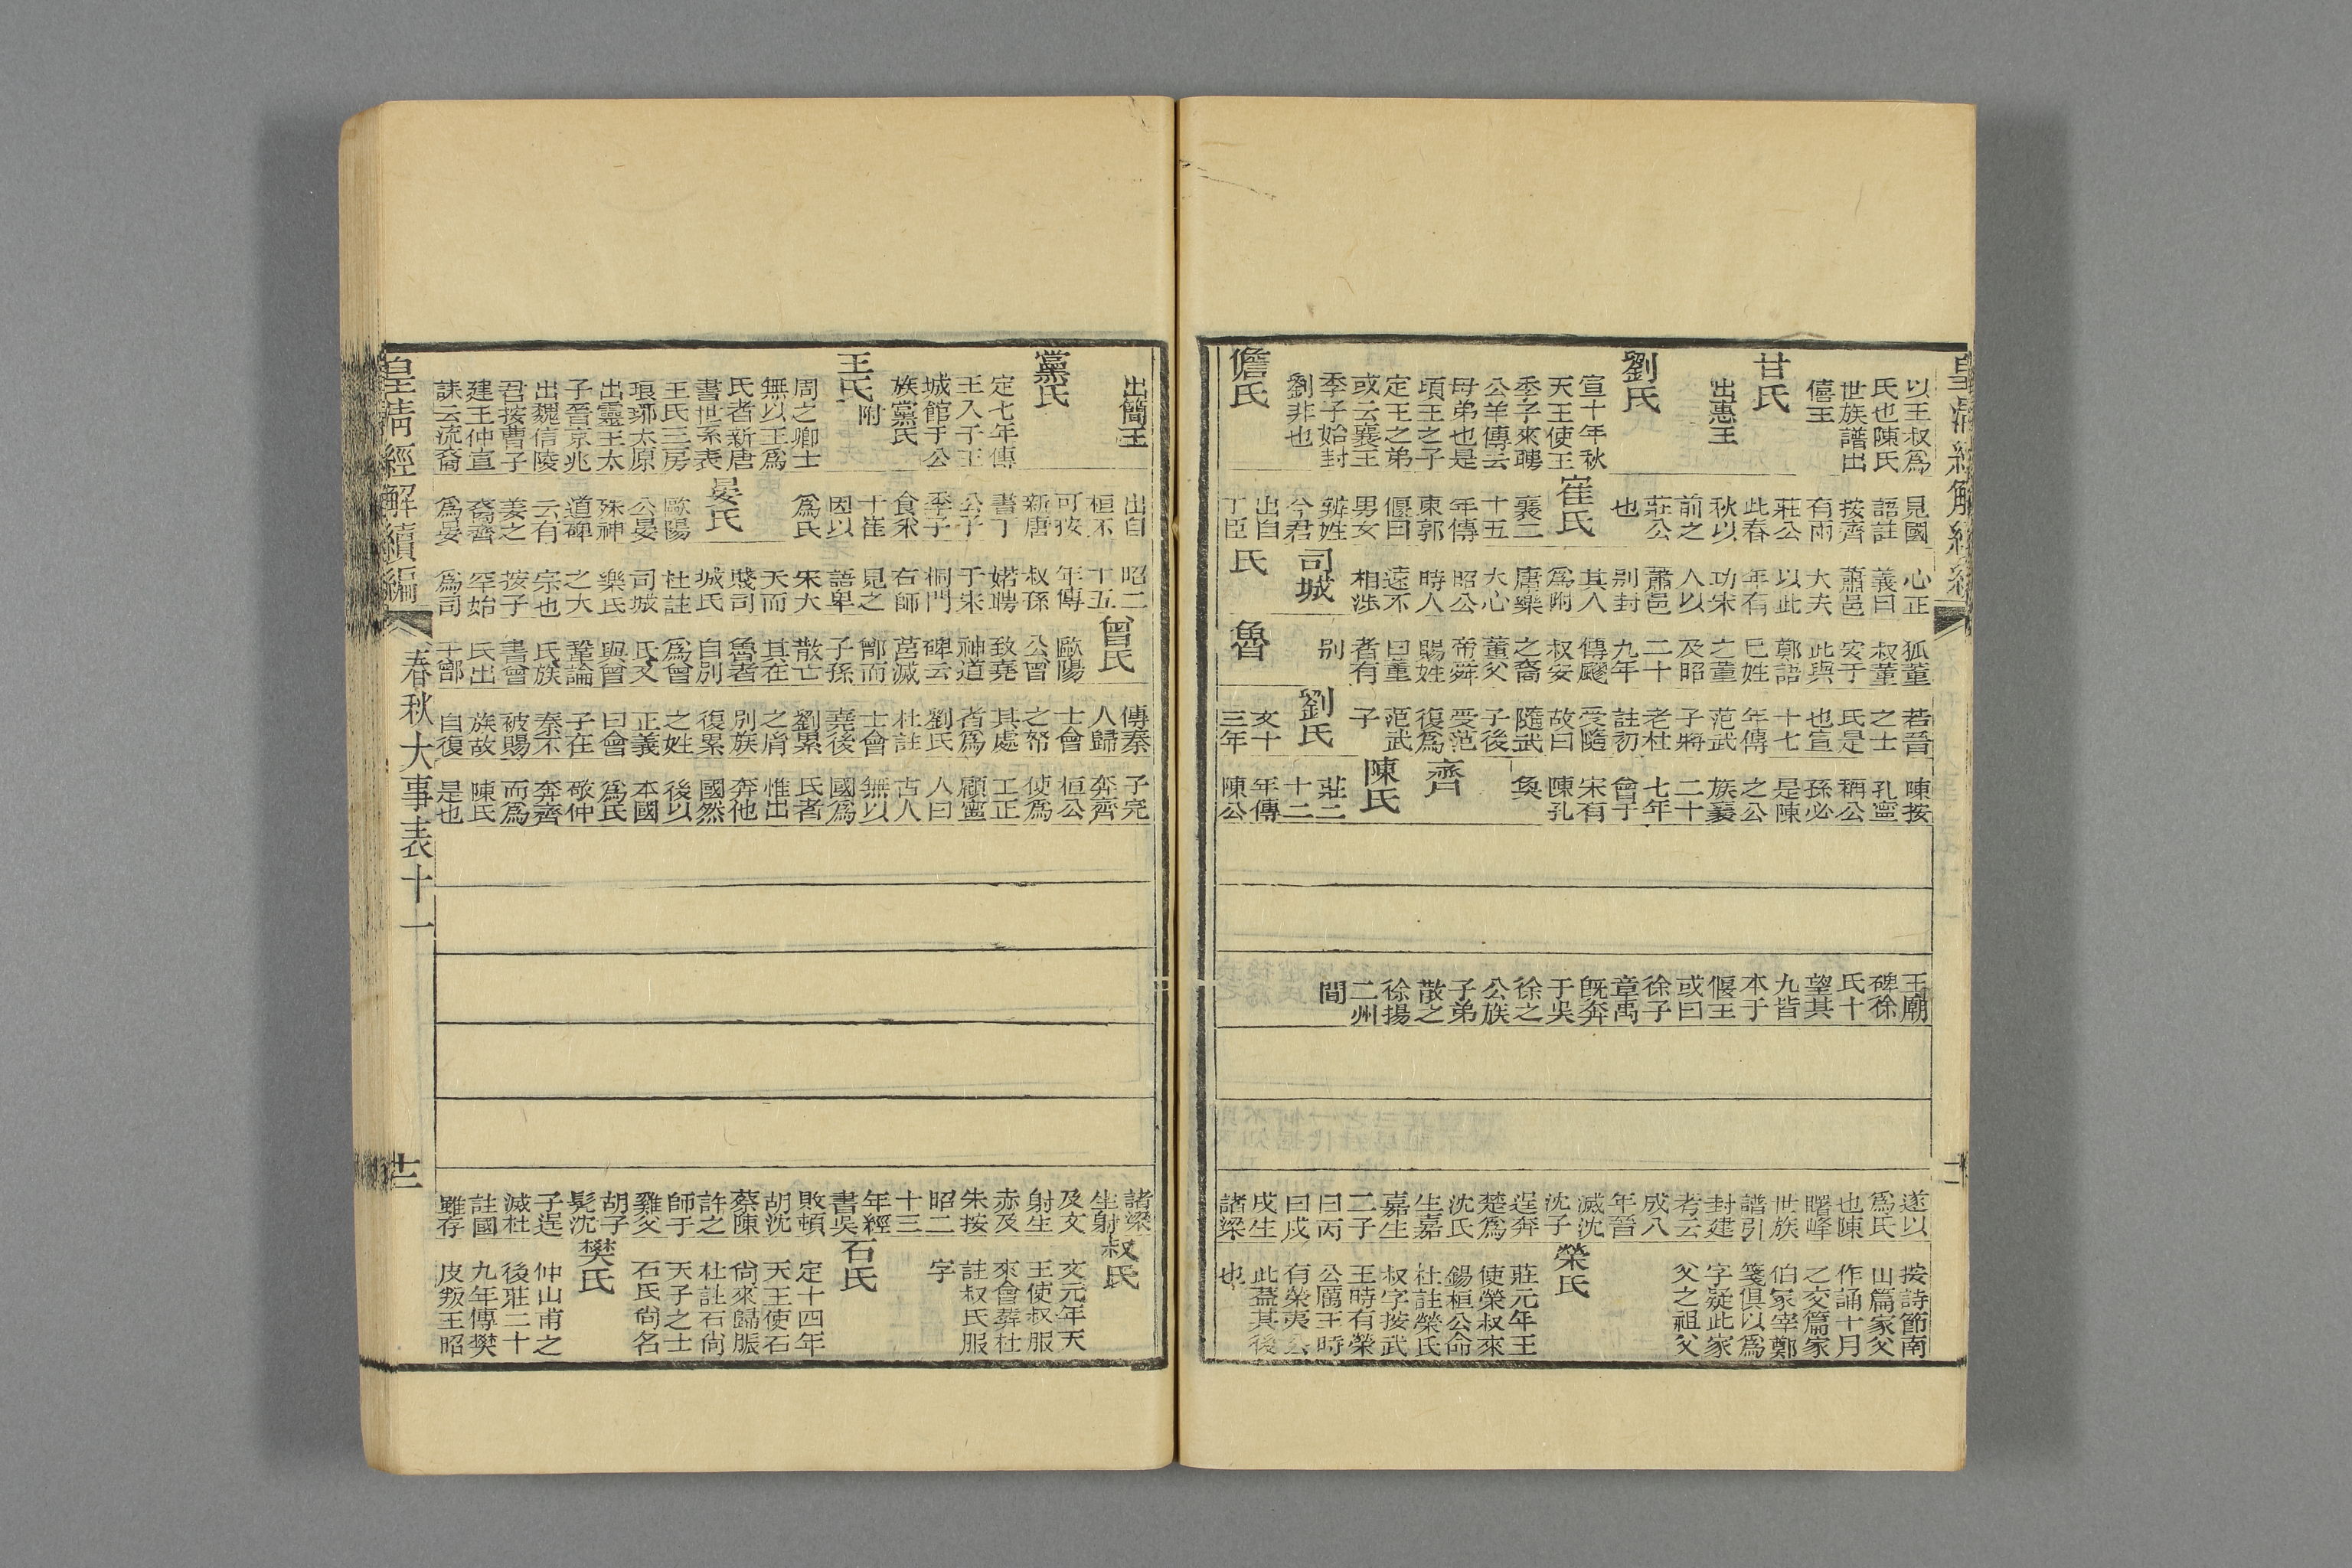 皇清經解續編
以王叔為
氏也陳氏
世族譜出
僖王
甘氏
出惠王
劉氏
宣十年秋
天王使王
季子來聘
公羊傳云
母弟也是
頃王之子
定王之弟
或云襄王
季子始封
劉非也
儋氏
見國
語註
按齊
有雨
莊公
此春
秋以
前之
莊公
也
崔氏
襄二
十五
年傳
東郭
偃曰
男女
辨姓
今君
出自
丁臣
心正
義曰
蕭邑
大夫
以此
年有
功宋
人以
蕭邑
别封
其人
為附
唐樂
大心
昭公
時人
遠不
相涉
司城
氏
狐董
叔董
安于
此與
鄭語
巳姓
之董
及昭
二十
九年
傳飂
叔安
之裔
董父
帝舜
賜姓
曰董
者有
别
魯
若晉
之士
氏是
也宣
十七
年傳
范武
子將
老杜
註初
受隨
故曰
隨武
子後
受范
復為
范武
子
劉氏
文十
三年
陳按
孔寧
稱公
孫必
是陳
之公
族襄
二十
七年
曾子
宋有
陳孔
奐
齊
陳氏
莊二
十二
年傳
陳公
王廟
碑徐
氏十
望其
九皆
本于
偃王
或曰
徐子
章禹
旣奔
于吳
徐之
公族
子弟
散之
徐揚
二州
間
遂以
為氏
也陳
曙峰
世族
譜引
封建
考云
成八
年晉
滅沈
沈子
逞奔
楚為
沈氏
生嘉
嘉生
二子
曰丙
曰戍
戍生
諸梁
按詩節南
山篇家父
作誦十月
之交篇家
伯家宰鄭
箋俱以為
字疑此家
父之祖父
榮氏
莊元年王
使榮叔來
錫桓公命
杜註榮氏
叔字按武
王時有榮
公厲王時
有榮夷公
此蓋其後
也
出簡王
黨氏
定七年傳
王入于王
城館于公
族黨氏
王氏附
周之卿士
無以王為
氏者新唐
書世系表
王氏三房
琅琊太原
出靈王太
子晉京兆
出魏信陵
君按曹子
建王仲宣
誄云流裔
出自
桓不
可按
新唐
書丁
公子
季子
食采
于崔
因以
為氏
晏氏
歐陽
公晏
殊神
道碑
云有
姜之
裔齊
為晏
昭二
十五
年傳
叔孫
婼聘
于宋
桐門
右師
見之
語卑
宋大
夫而
賤司
城氏
杜註
司城
樂氏
之大
宗也
按子
罕始
為司
曾氏
歐陽
公曾
致堯
神道
碑云
莒滅
鄫而
子孫
散亡
其在
魯者
自別
為曾
氏又
與曾
鞏論
氏族
書曾
氏出
于鄫
傳秦
人歸
士會
之帑
其處
者為
劉氏
杜註
士會
堯後
劉累
之胤
別族
復累
之姓
正義
曰會
子在
秦不
被賜
族故
自復
子完
奔齊
桓公
使為
工正
顧寧
人曰
古人
無以
國為
氏者
惟出
奔他
國然
後以
本國
為氏
敬仲
奔齊
而為
陳氏
是也
諸梁
生射
及文
射生
赤及
朱按
昭二
十三
年經
書吳
敗頓
胡沈
蔡陳
許之
師于
雞父
胡子
髠沈
子逞
滅杜
註國
雖存
叔氏
文元年天
王使叔服
來會葬杜
註叔氏服
字
石氏
定十四年
天王使石
尙來歸脤
杜註石尙
天子之士
石氏尙名
樊氏
仲山甫之
後莊二十
九年傳樊
皮叛王昭
皇清經解續編
春秋大事表十一
十二